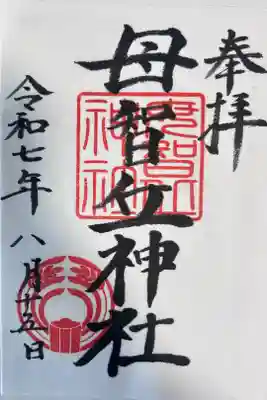 奉拝
母智丘神社
令和七年 八月廿五日
母智丘
神社